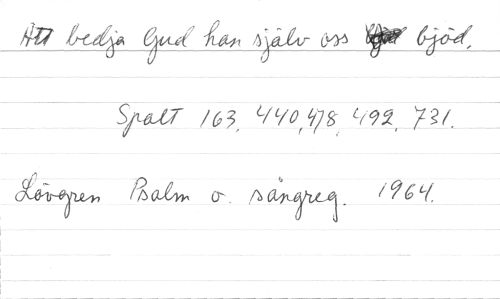 Att bedja Gud han själv oss bjöd.
Spalt 163, 440, 478, 492, 731.
Lövgren Psalm o. sångreg. 1964.